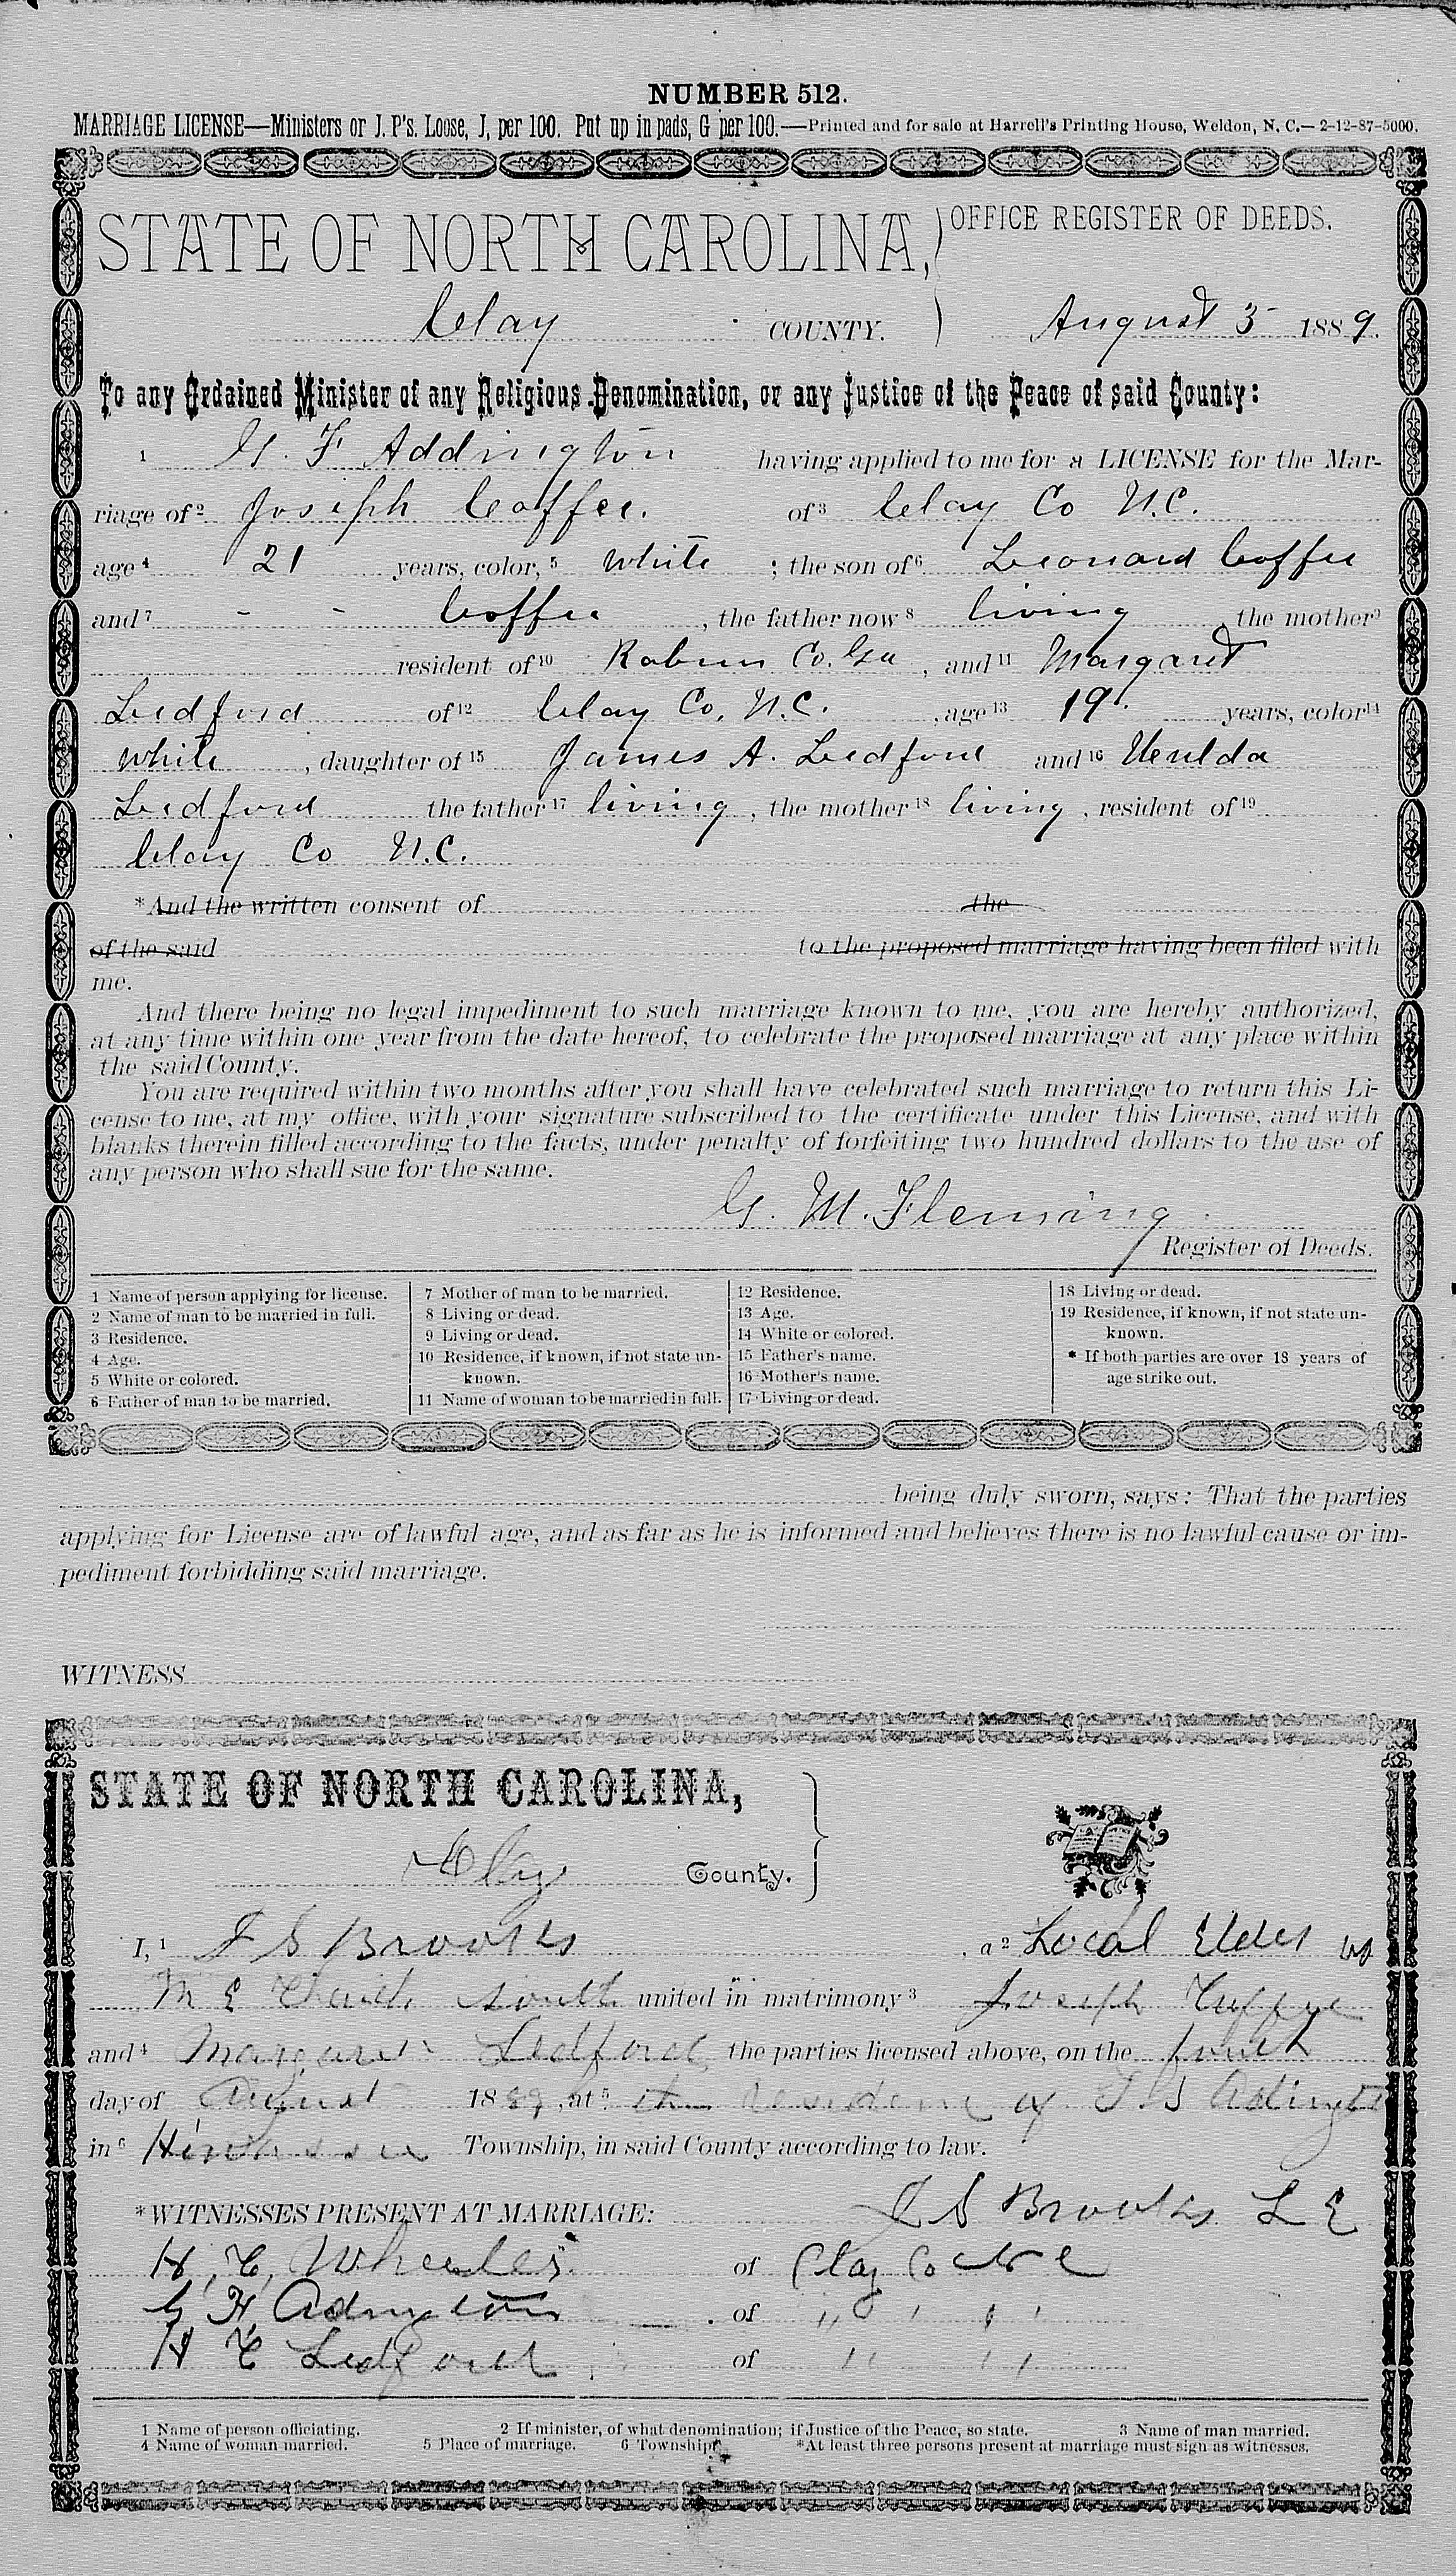 NUMBER 512.
MARRIAGE LICENSE—Ministers or J. P's. Loose, J, per 100. Put up in pads, G per 100.—Printed and for sale at Harrell's Printing House, Weldon, N. C.—2-12-87-5000.
STATE OF NORTH CAROLINA, OFFICE REGISTER OF DEEDS.
Clay COUNTY. August 3 1889.
To any Ordained Minister of any Religious Denomination, or any Justice of the Peace of said County:
1 G. F Addington having applied to me for a LICENSE for the Mar-
riage of 2 Joseph Coffee. of 3 Clay Co N.C.
age 4 21 years, color, 5 White ; the son of 6 Leonard Coffee
and 7 - - Coffee , the father now 8 living , the mother 9
resident of 10 Rabun Co. Ga , and 11 Margaret
Ledford of 12 Clay Co, N.C. , age 13 19. years, color 14
White , daughter of 15 James A. Ledford and 16
Ledford the father 17 living , the mother 18 living , resident of 19
Clay Co N.C.
*And the written consent of the
of the said to the proposed marriage having been filed with
me.
And there being no legal impediment to such marriage known to me, you are hereby authorized,
at any time within one year from the date hereof, to celebrate the proposed marriage at any place within
the said County.
You are required within two months after you shall have celebrated such marriage to return this Li-
cense to me, at my office, with your signature subscribed to the certificate under this License, and with
blanks therein filled according to the facts, under penalty of forfeiting two hundred dollars to the use of
any person who shall sue for the same.
G. M. Fleming
Register of Deeds.
1 Name of person applying for license.
2 Name of man to be married in full.
3 Residence.
4 Age.
5 White or colored.
6 Father of man to be married.
7 Mother of man to be married.
8 Living or dead.
9 Living or dead.
10 Residence, if known, if not state un-
known.
11 Name of woman to be married in full.
12 Residence.
13 Age.
14 White or colored.
15 Father's name.
16 Mother's name.
17 Living or dead.
18 Living or dead.
19 Residence, if known, if not state un-
known.
* If both parties are over 18 years of
age strike out.
being duly sworn, says: That the parties
applying for License are of lawful age, and as far as he is informed and believes there is no lawful cause or im-
pediment forbidding said marriage.
WITNESS
STATE OF NORTH CAROLINA,
Clay County.
I, 1 J S Brooks , a 2 Local Elder
M E Church South united in matrimony 3 Joseph Cuffye
and 4 Margaret Ledford the parties licensed above, on the fourth
day of August 1889, at 5 the residence of
in 6 Township, in said County according to law.
*WITNESSES PRESENT AT MARRIAGE: J S Brooks L E
H, C, Wheeler of Clay Co N C
G F, Adington of " " " "
H C Ledford of " " " "
1 Name of person officiating. 2 If minister, of what denomination; if Justice of the Peace, so state. 3 Name of man married.
4 Name of woman married. 5 Place of marriage. 6 Township. *At least three persons present at marriage must sign as witnesses.